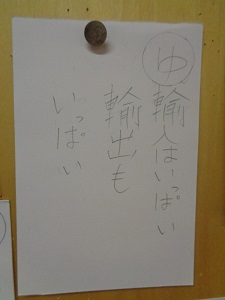 ゆ
輸入はいっぱい
輸出も
いっぱい